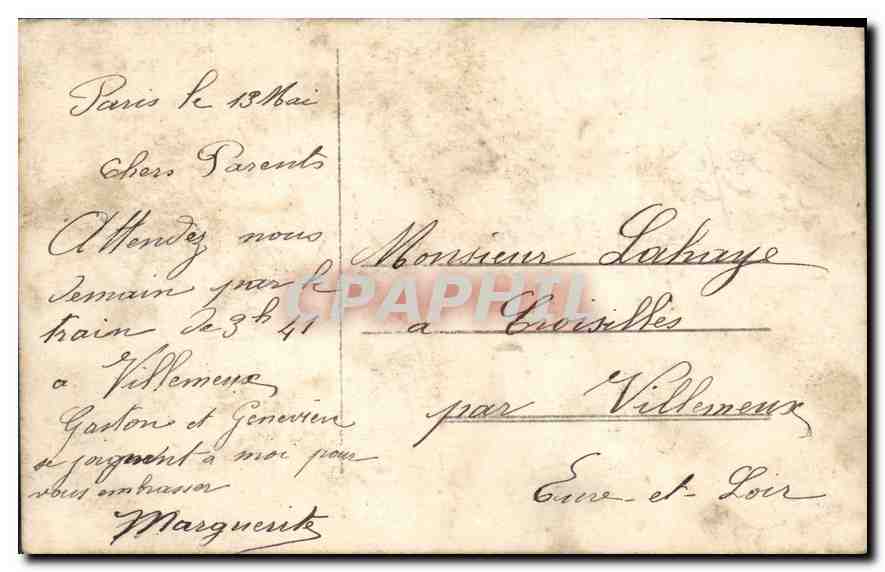 Paris le 13 Mai
chers Parents
Attendez nous
demain par le
train de 3h 41
a Villemeux
Gaston et Genevieve
se joignent a moi pour
vous embrasser
Marguerite
Monsieur Lahaye
a Croisilles
par Villemeux
Eure-et-Loir
CPAPHIL